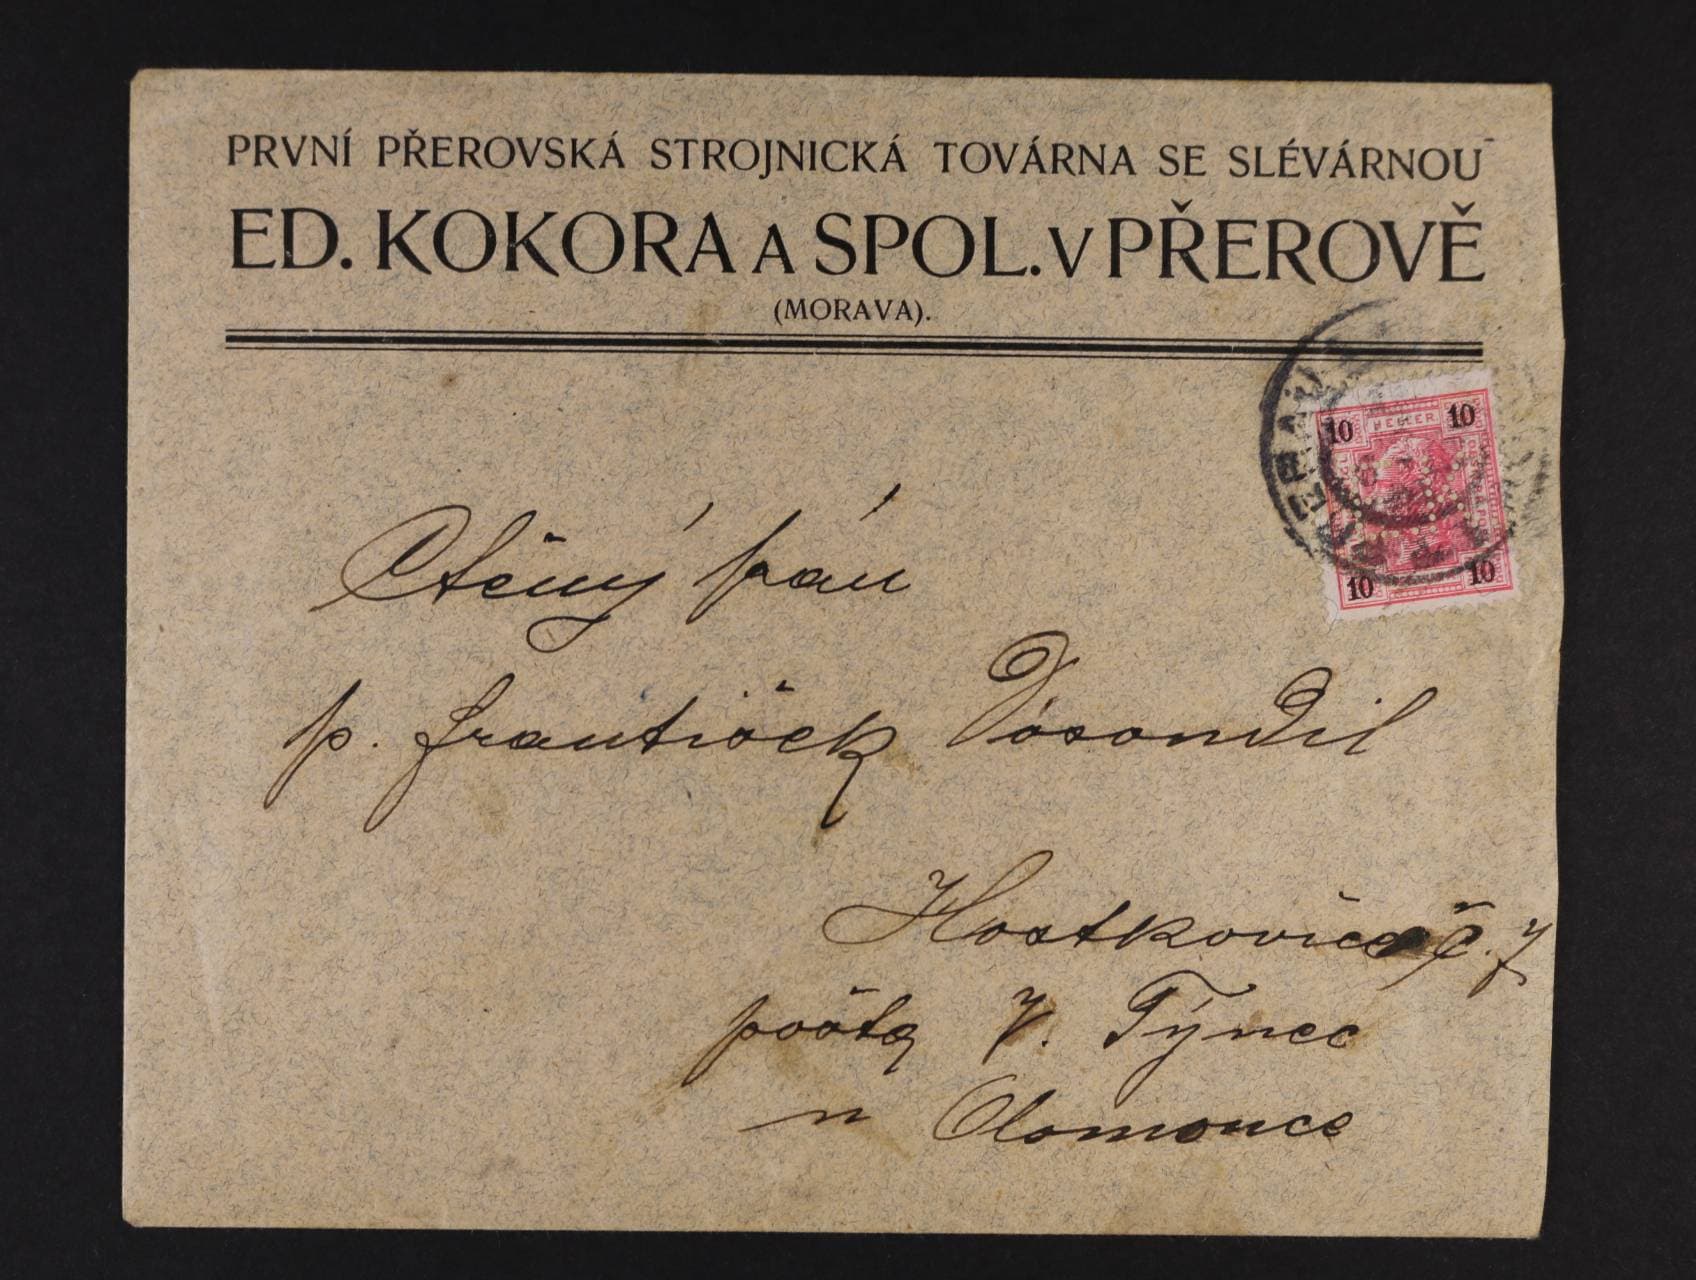 PRVNÍ PŘEROVSKÁ STROJNICKÁ TOVÁRNA SE SLÉVÁRNOU
ED. KOKORA A SPOL. V PŘEROVĚ
(MORAVA).
10 HELLER 10
10 10
Ctěný pán
p. František Dosondil
Hostkovice č. 7
pošta V. Týnec
u Olomouce